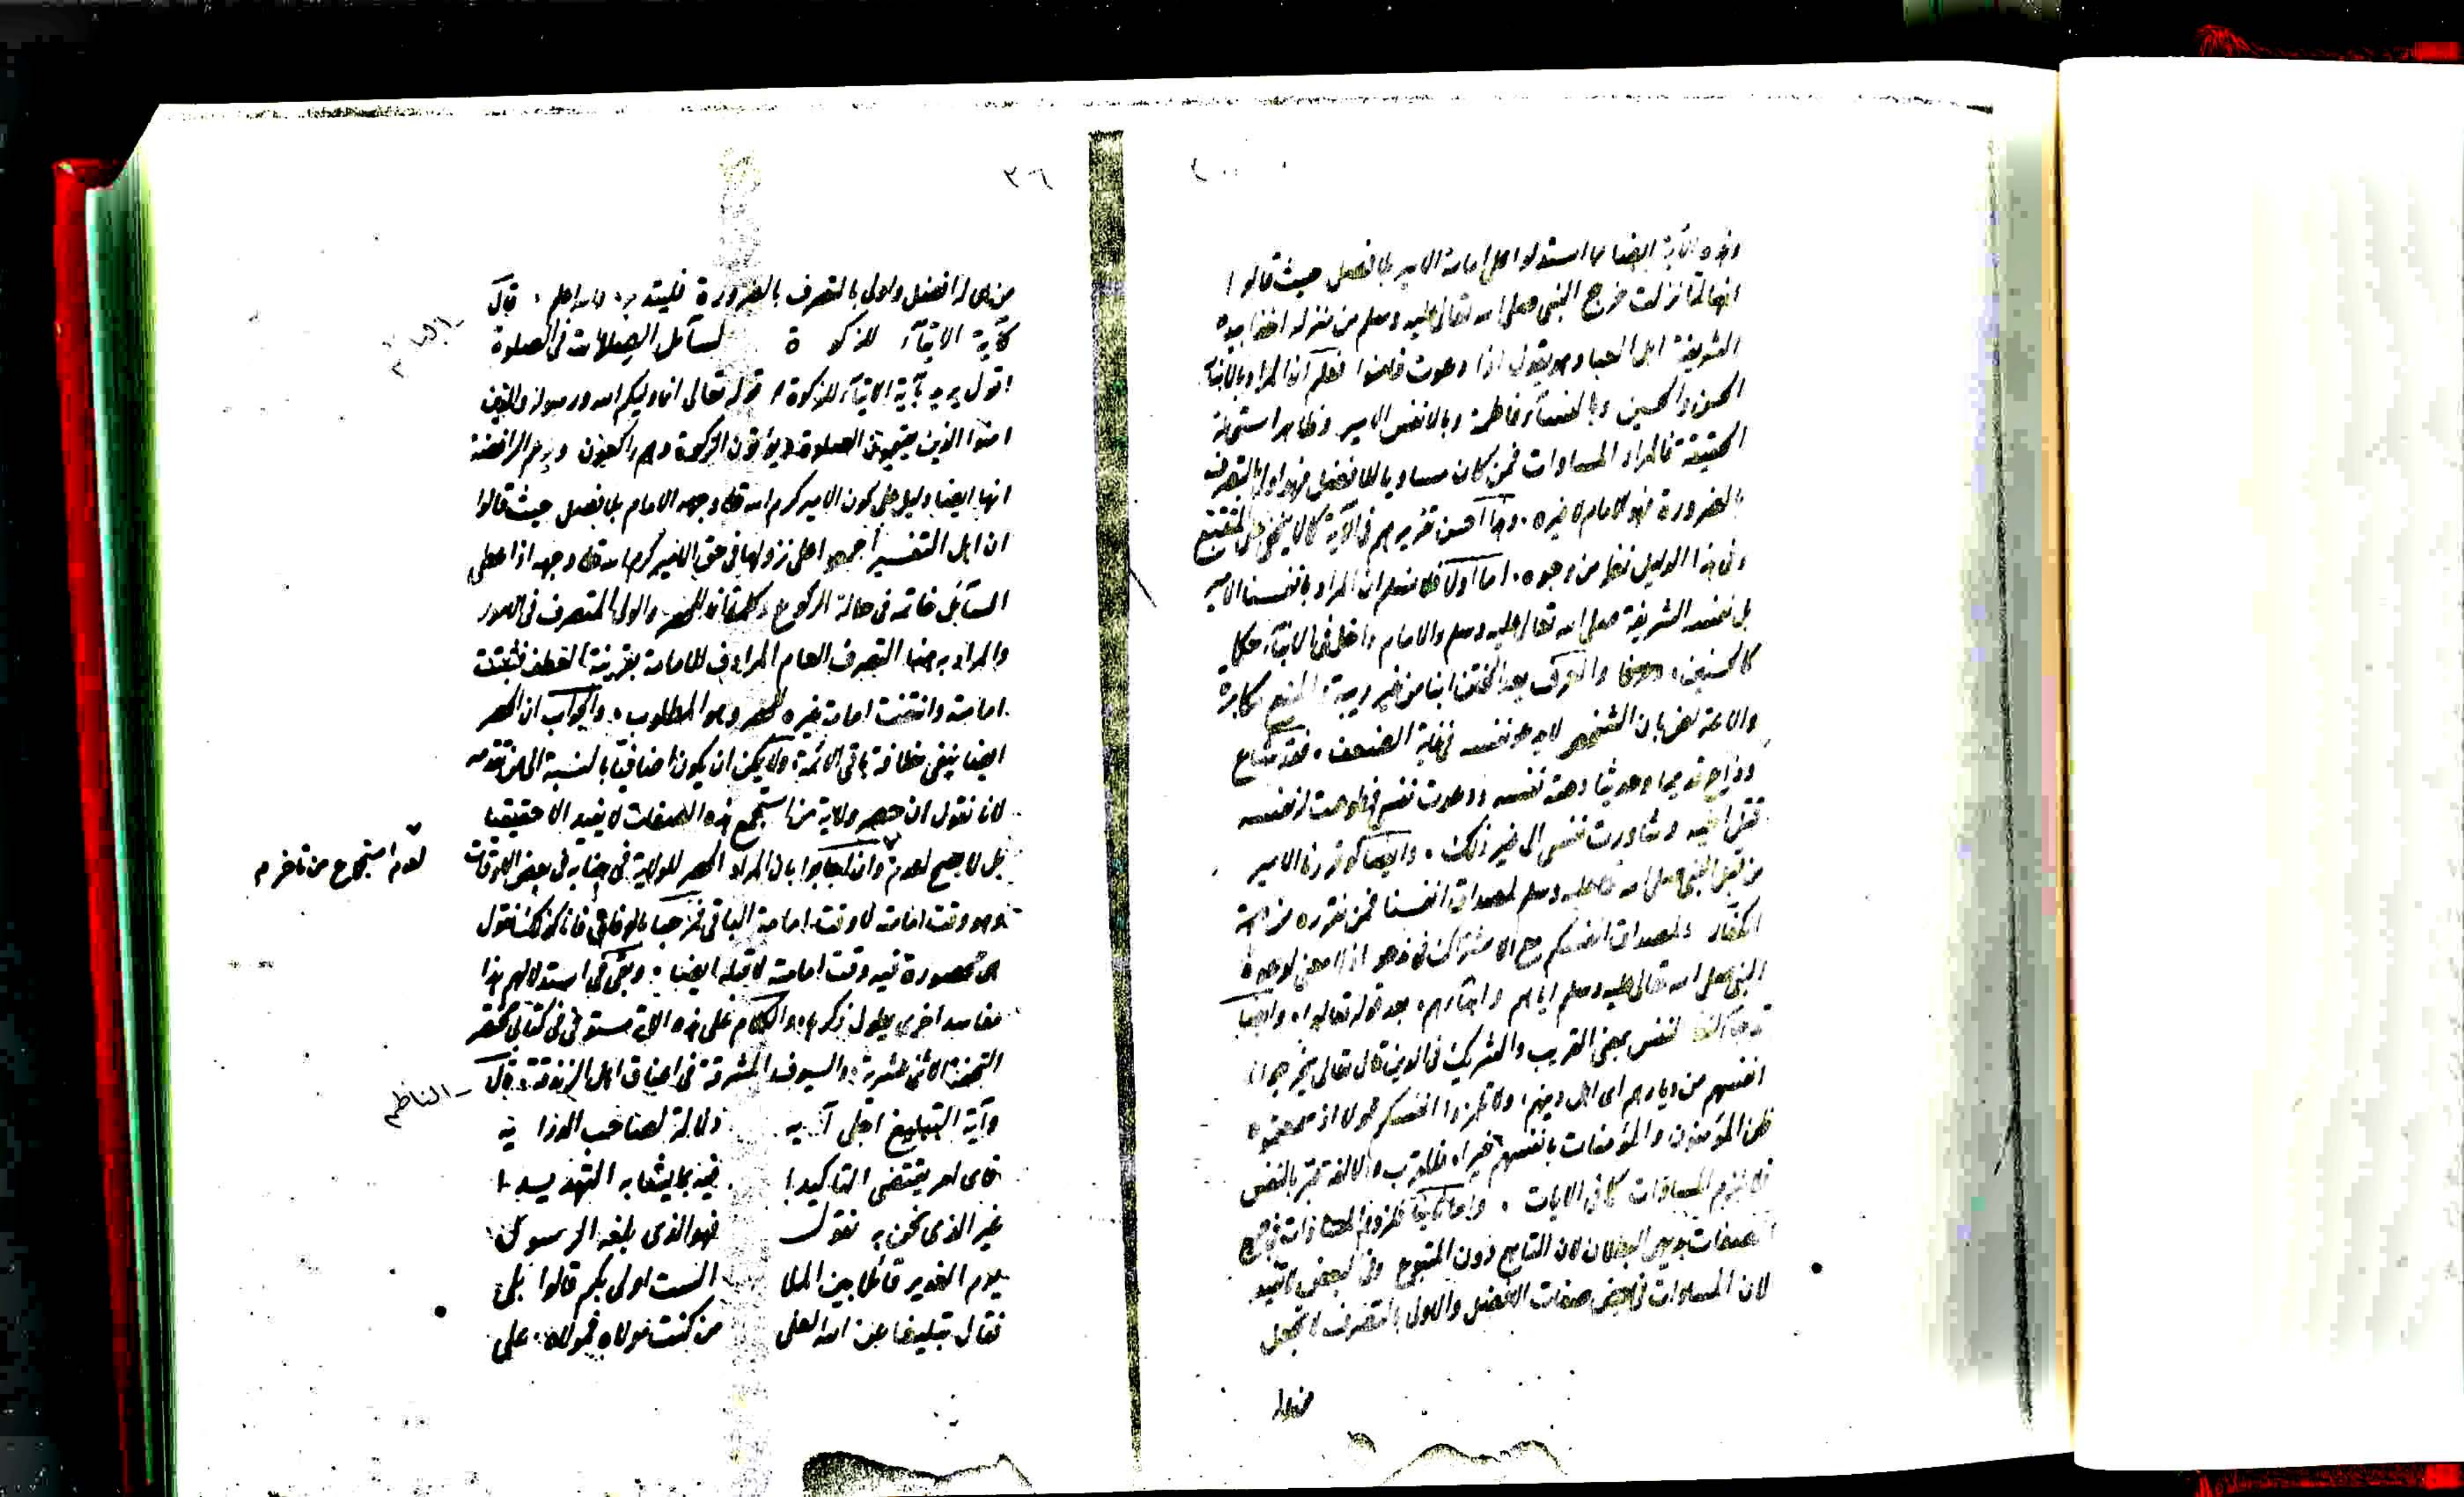 وهذه الآية ايضا مما استدلوا على امامة الامير بلا فصل حيث قالوا
انها لما نزلت خرج النبي صلى الله تعالى عليه وسلم من منزله اخذا بيده
الشريفة اهل العبا وهو يقول اذا دعوت فامنوا فعلم ان المراد بالابنآء
الحسن والحسين وبالنسآء فاطمة وبالانفس الامير وظاهر استحالة
الحقيقة فالمراد المساوات فمن كان مساويا للافضل فهو اولى بالتصرف
بالضرورة فهو الامام لا غيره وهذا احسن تقريرهم في الآية كما لا يخفى على المتتبع
وفي هذا الدليل نظر من وجوه اما اولا فلا نسلم ان المراد بانفسنا الامير
بل نفسه الشريفة صلى الله تعالى عليه وسلم والامام داخل في الابنآء حكما
كالحسنين والعرف يعد الختن ابنا من غير ريبة المنع مكابرة
والاعتراض بان الشخص لا يدعو نفسه في غاية الضعف فقد شاع
وذاع قديما وحديثا دعته نفسه ودعوت نفسي فطوعت له نفسه
قتل اخيه وشاورت نفسي الى غير ذلك وايضا لو قررنا الامير
من قبل النبي صلى الله تعالى عليه وسلم لمصداق انفسنا فمن نقرره من جهة
الكفار لمصداق انفسكم مع الاشتراك في ندعو اذ لا معنى لدعوة
النبي صلى الله تعالى عليه وسلم اياهم وابنآءهم بعد قوله تعالوا وايضا
قد جآء النفس بمعنى القريب والشريك في الدين قال تعالى يخرجون
انفسهم من ديارهم اى اهل دينهم ولا تلمزوا انفسكم لولا اذ سمعتموه
ظن المؤمنون والمؤمنات بانفسهم خيرا فللقرب والالفة عبر بالنفس
فلا يلزم المساوات كما في الايات واما ثانيا فلزوم المساوات في جميع
الصفات بديهي البطلان لان التابع دون المتبوع وفي البعض لا تفيد
لان المساوات في بعض صفات الافضل والاولى بالتصرف لا تجعل
من هو
٣٦
من هى له افضل واولى بالتصرف بالضرورة فليتدبر والله اعلم قال
الناظم
كآية الايتآء للزكوة لسآئل الصلات في الصلوة
اقول يريد بآية الايتآء للزكوة قوله تعالى انما وليكم الله ورسوله والذين
امنوا الذين يقيمون الصلوة ويؤتون الزكوة وهم راكعون ويزعم الرافضة
انها ايضا دليل على كون الامير كرم الله تعالى وجهه الامام بلا فصل حيث قالوا
ان اهل التفسير اجمعوا على نزولها في حق الامير كرم الله تعالى وجهه اذ اعطى
السآئل خاتمه في حالة الركوع وكلمة انما للحصر والولى المتصرف في الامور
والمراد به هنا التصرف العام المرادف للامامة بقرينة العطف فثبتت
امامته وانتفت امامة غيره للحصر وهو المطلوب والجواب ان الحصر
ايضا ينفى خلافة باقى الائمة ولا يمكن ان يكون اضافيا بالنسبة الى من تقدمه
لانا نقول ان حصر ولاية من استجمع هذه الصفات لا يفيد الا حقيقيا
بل لا يصح لعدمه وان اجابوا بان المراد الحصر للولاية في جنابه في بعض الاوقات
لعدم استجماع من تاخر م
وهو وقت امامته لا وقت امامة الباقى فمرحبا بالوفاق فانا كذلك نقول
هى محصورة فيه وقت امامته لا قبله ايضا وبقى في استدلالهم هذا
مفاسد اخرى يطول ذكرها والكلام على هذه الاية مستوفى في كتابى مختصر
التحفة الاثنى عشرية والسيوف المشرقة في اعناق اهل الزندقة قال
الناظم
وآية التبليغ اجلى آيه دلالة لصاحب الدرايه
فاى امر يقتضى التاكيدا فيه بما يشابه التهديدا
غير الذى نحن به نقول فهو الذى بلغه الرسول
يوم الغدير قائلا بين الملا الست اولى بكم قالوا بلى
فقال تبليغا عن الله العلى من كنت مولاه فمولاه على